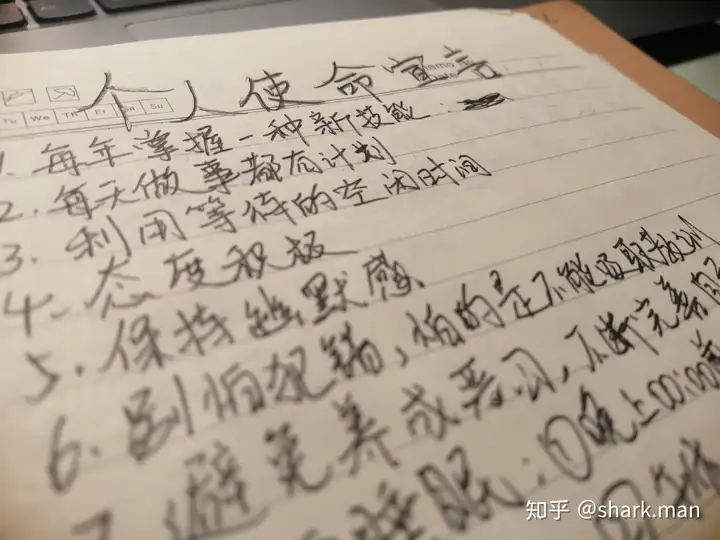 个人使命宣言
Tu We Th Fr Sa Su
1. 每年掌握一种新技能.
2. 每天做事都有计划
3. 利用等待的空闲时间
4. 态度积极
5. 保持幽默感
6. 别怕犯错,怕的是不能吸取教训
7. 避免养成恶习,不断完善自
睡眠:①晚上00:00前
知乎 @shark.man